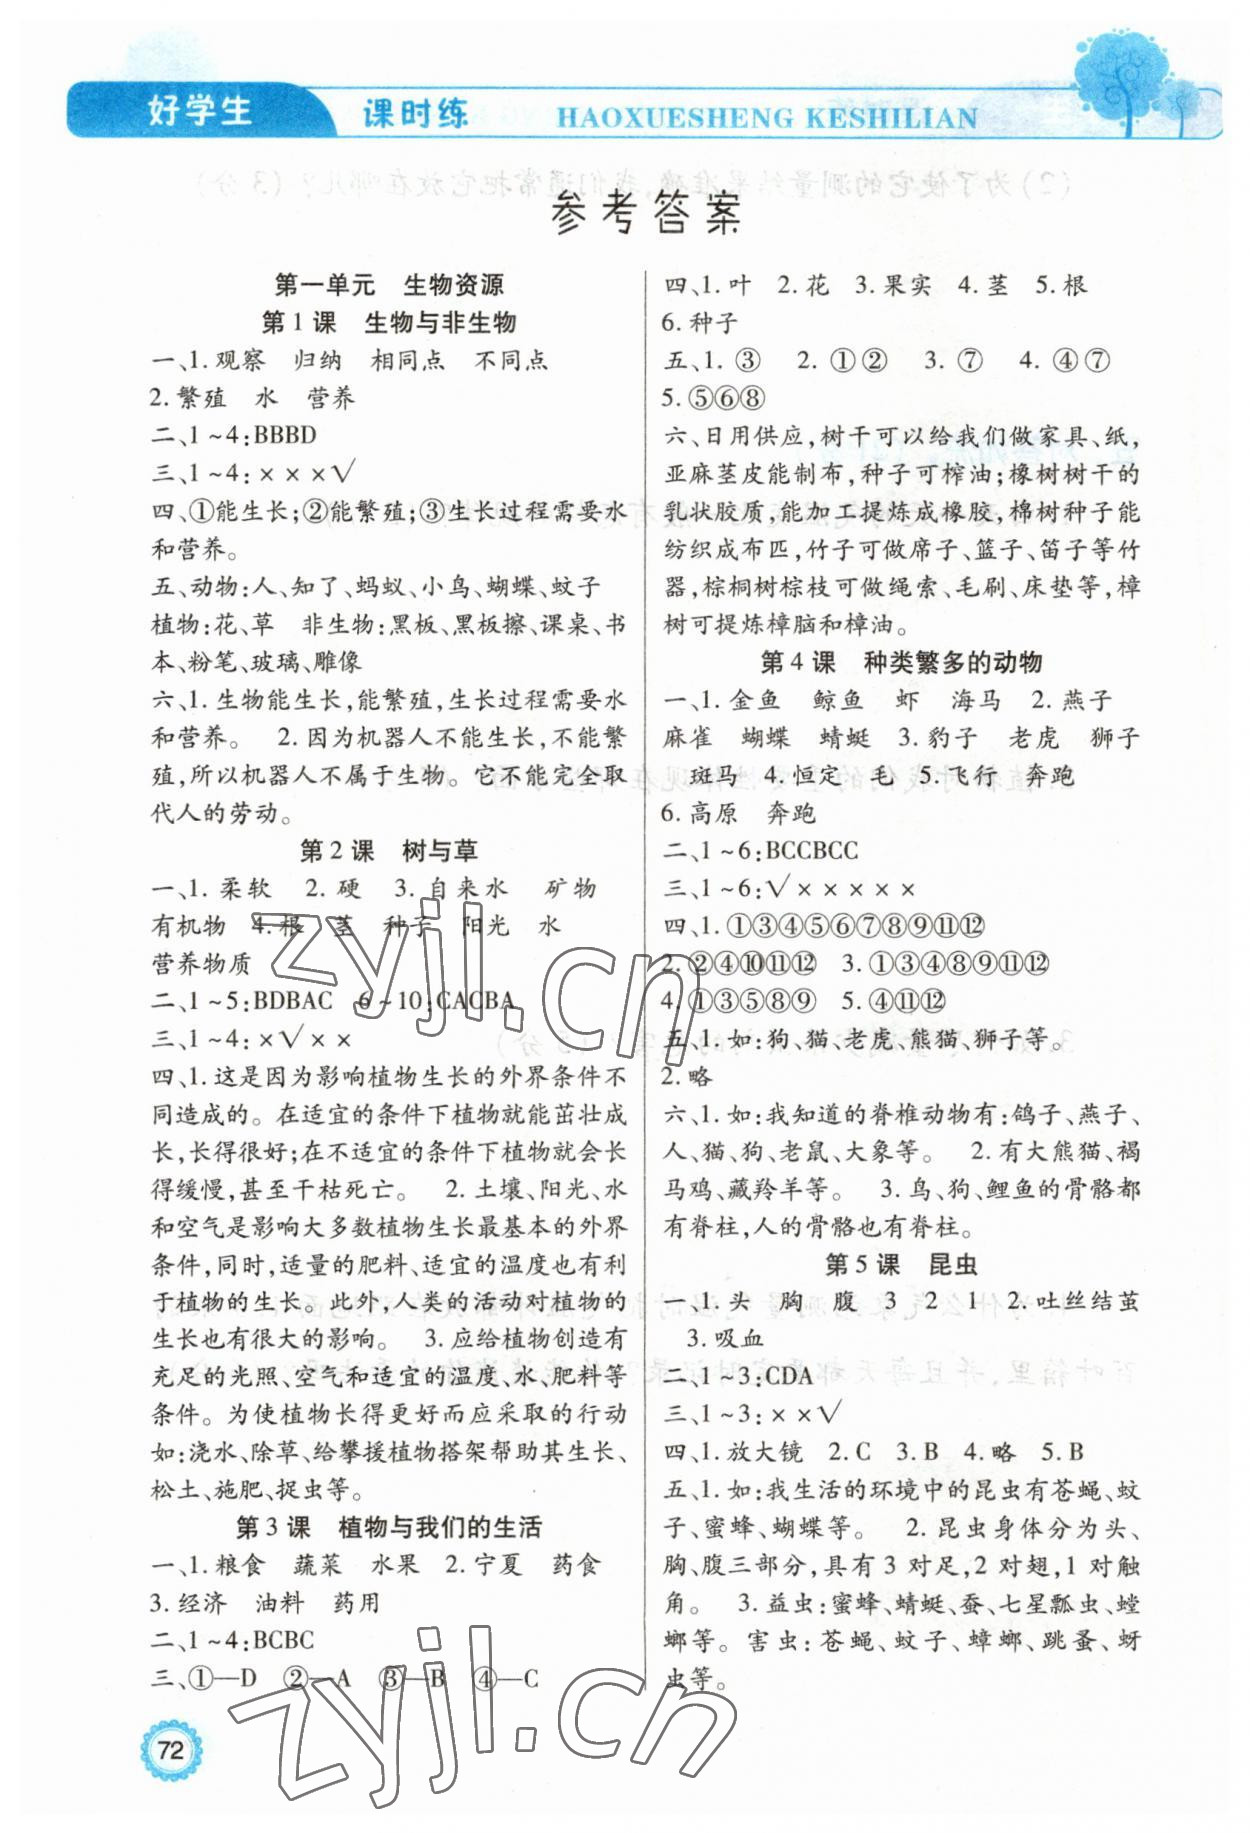 好学生 课时练 HAOXUESHENG KESHILIAN
参考答案
第一单元 生物资源
第1课 生物与非生物
一、1.观察 归纳 相同点 不同点
2.繁殖 水 营养
二、1~4:BBBD
三、1~4:×××√
四、①能生长;②能繁殖;③生长过程需要水
和营养。
五、动物:人、知了、蚂蚁、小鸟、蝴蝶、蚊子
植物:花、草 非生物:黑板、黑板擦、课桌、书
本、粉笔、玻璃、雕像
六、1.生物能生长,能繁殖,生长过程需要水
和营养。 2.因为机器人不能生长,不能繁
殖,所以机器人不属于生物。它不能完全取
代人的劳动。
第2课 树与草
一、1.柔软 2.硬 3.自来水 矿物
有机物 4.根 茎 种子 阳光 水
营养物质
二、1~5:BDBAC 6~10:CACBA
三、1~4:×√××
四、1.这是因为影响植物生长的外界条件不
同造成的。在适宜的条件下植物就能茁壮成
长,长得很好;在不适宜的条件下植物就会长
得缓慢,甚至干枯死亡。 2.土壤、阳光、水
和空气是影响大多数植物生长最基本的外界
条件,同时,适量的肥料、适宜的温度也有利
于植物的生长。此外,人类的活动对植物的
生长也有很大的影响。 3.应给植物创造有
充足的光照、空气和适宜的温度、水、肥料等
条件。为使植物长得更好而应采取的行动
如:浇水、除草、给攀援植物搭架帮助其生长、
松土、施肥、捉虫等。
第3课 植物与我们的生活
一、1.粮食 蔬菜 水果 2.宁夏 药食
3.经济 油料 药用
二、1~4:BCBC
三、①—D ②—A ③—B ④—C
四、1.叶 2.花 3.果实 4.茎 5.根
6.种子
五、1.③ 2.①② 3.⑦ 4.④⑦
5.⑤⑥⑧
六、日用供应,树干可以给我们做家具、纸,
亚麻茎皮能制布,种子可榨油;橡树树干的
乳状胶质,能加工提炼成橡胶,棉树种子能
纺织成布匹,竹子可做席子、篮子、笛子等竹
器,棕榈树棕枝可做绳索、毛刷、床垫等,樟
树可提炼樟脑和樟油。
第4课 种类繁多的动物
一、1.金鱼 鲸鱼 虾 海马 2.燕子
麻雀 蝴蝶 蜻蜓 3.豹子 老虎 狮子
斑马 4.恒定 毛 5.飞行 奔跑
6.高原 奔跑
二、1~6:BCCBCC
三、1~6:√×××××
四、1.①③④⑤⑥⑦⑧⑨⑪⑫
2.②④⑩⑪⑫ 3.①③④⑧⑨⑪⑫
4.①③⑤⑧⑨ 5.④⑪⑫
五、1.如:狗、猫、老虎、熊猫、狮子等。
2.略
六、1.如:我知道的脊椎动物有:鸽子、燕子、
人、猫、狗、老鼠、大象等。 2.有大熊猫、褐
马鸡、藏羚羊等。 3.鸟、狗、鲤鱼的骨骼都
有脊柱,人的骨骼也有脊柱。
第5课 昆虫
一、1.头 胸 腹 3 2 1 2.吐丝结茧
3.吸血
二、1~3:CDA
三、1~3:××√
四、1.放大镜 2.C 3.B 4.略 5.B
五、1.如:我生活的环境中的昆虫有苍蝇、蚊
子、蜜蜂、蝴蝶等。 2.昆虫身体分为头、
胸、腹三部分,具有3对足,2对翅,1对触
角。 3.益虫:蜜蜂、蜻蜓、蚕、七星瓢虫、螳
螂等。害虫:苍蝇、蚊子、蟑螂、跳蚤、蚜
虫等。
72
zyjl.cn